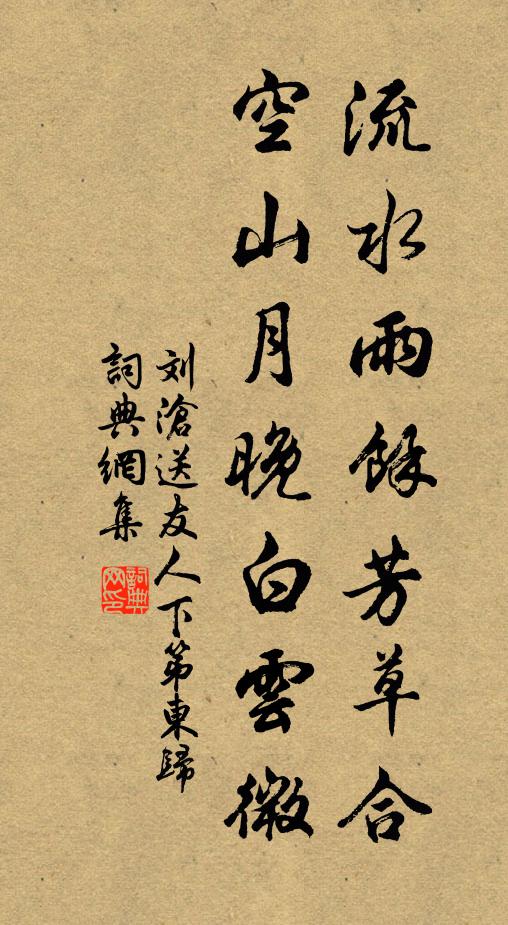 流水雨餘芳草合
空山月晚白雲微
刘滄送友人下第東歸
詞典網集
詞典网印